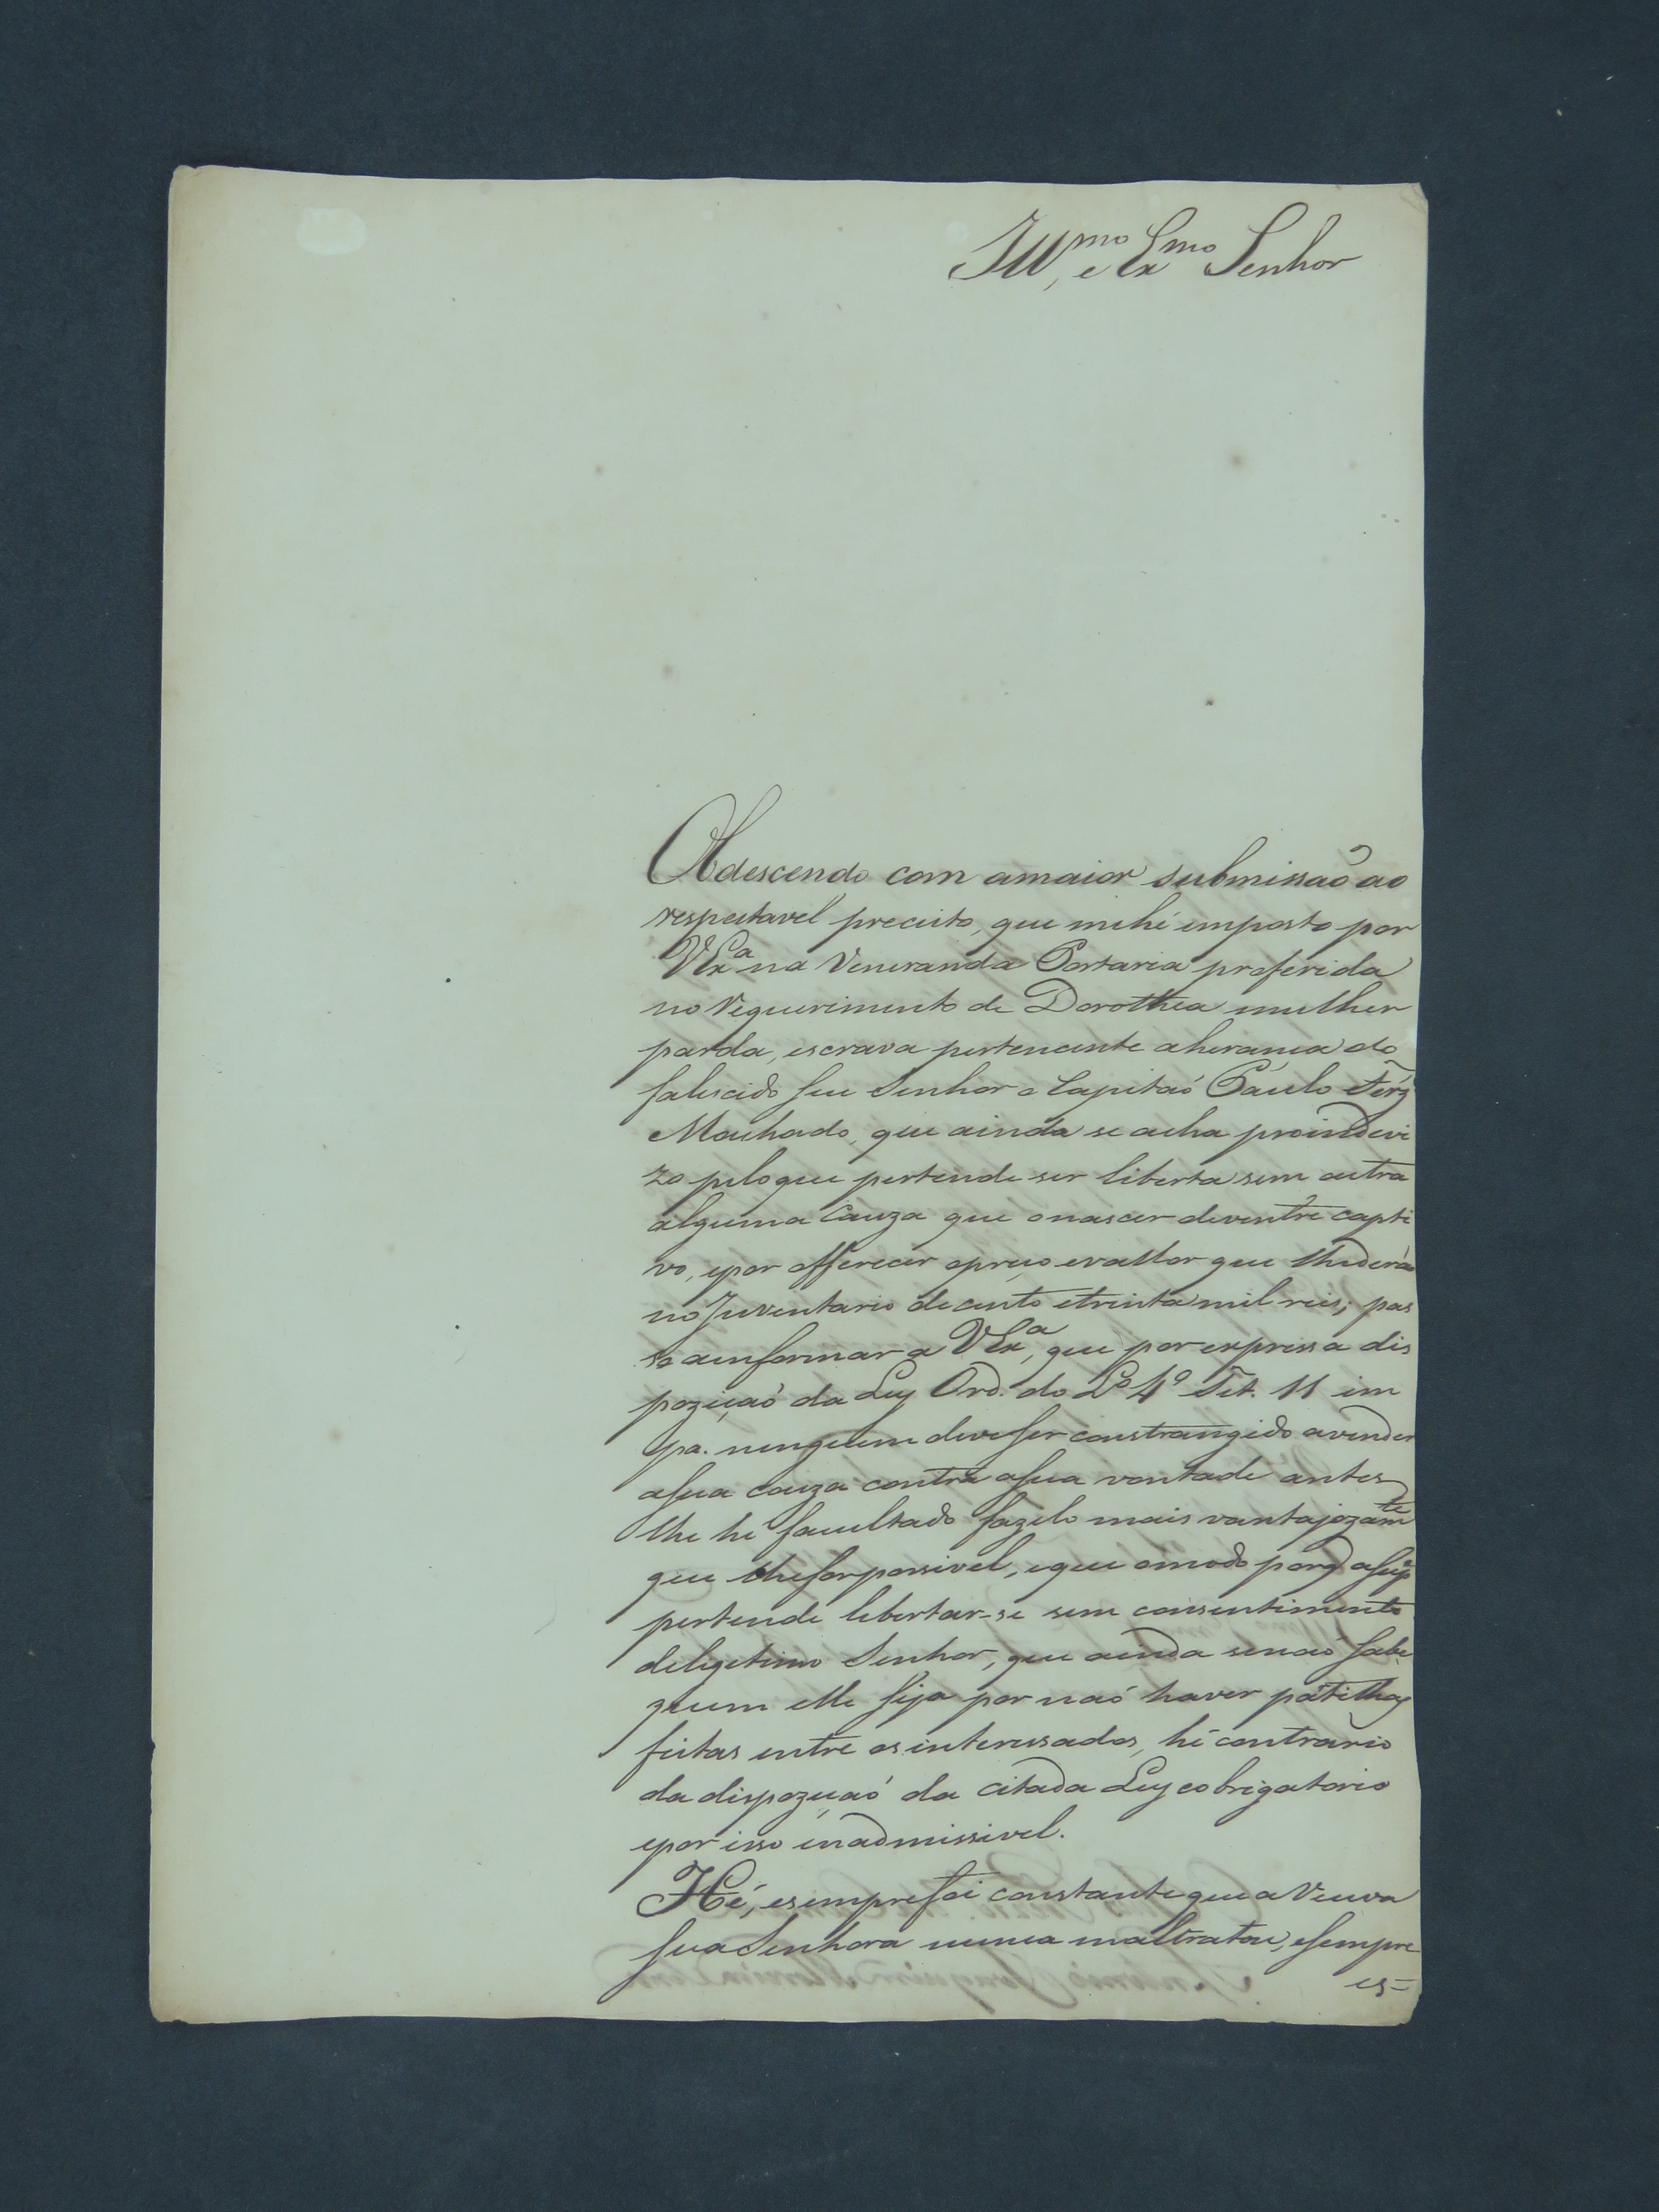 Ill.mo, e Ex.mo Senhor
Obdescendo com amaior submissaõ ao
respeitavel preceito, que mehé imposto por
VEx.a na Veneranda Portaria proferida
no Requerimento de Dorothea mulher
parda, escrava pertencente aherança do
falescido seu Senhor o Capitaõ Paulo Ferz
Machado, que ainda se acha proindevi
zo peloque pertende ser liberta sem outra
alguma cauza que onascer deventre capti
vo, epor offerecer opreço evallor que lhederaõ
no Inventario decento etrinta mil reis; pas
so ainformar a VEx.a, que por expressa dis
poziçaõ da Ley Ord. do L.o 4.o Tit. 11 im
pa. ninguem deveser constrangido avender
asua couza contra asua vontade antes
lhe hé facultado fazelo mais vantajozam.te
que lhefor possivel, eque omodo porq asup.e
pertende libertar-se sem consentimento
delegetimo Senhor, que ainda senaõ sabe
quem elle seja por naõ haver patilhas
feitas entre osinteressados, hé contrario
da dispoziçaõ da citada Ley eobrigatorio
epor isso inadmissivel.
Hé, esemprefoi constante que a Veuva
sua Senhora nunca maltratou, esempre
es=